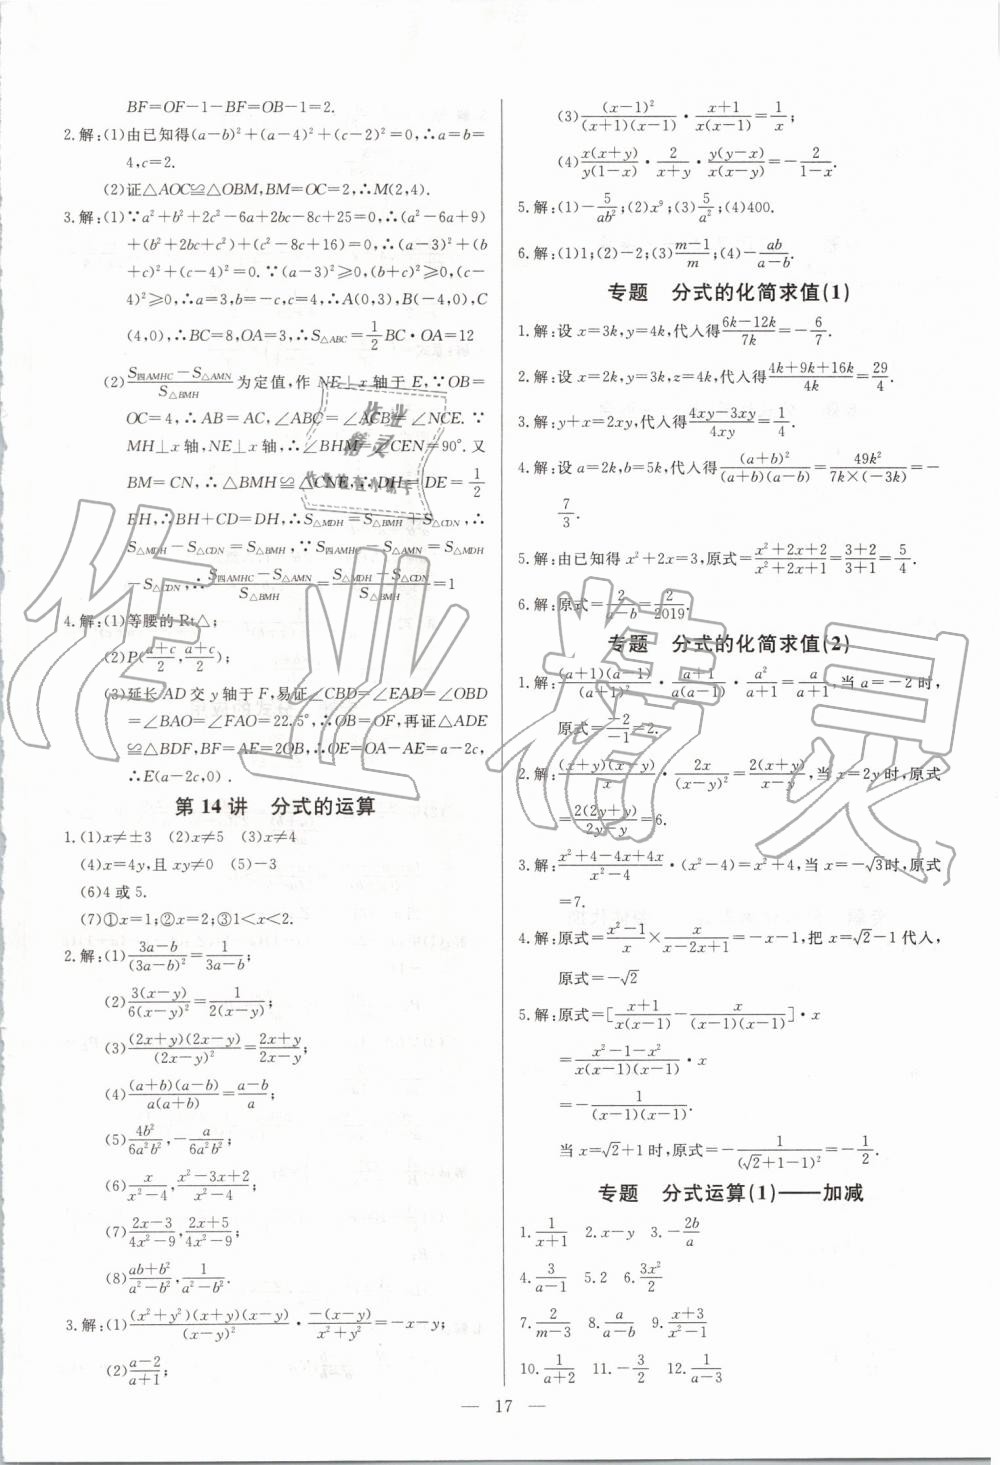 BF=OF-1-BF=OB-1=2.
2.解:(1)由已知得(a-b)²+(a-4)²+(c-2)²=0,∴a=b=
4,c=2.
(2)证△AOC≌△OBM,BM=OC=2,∴M(2,4).
3.解:(1)∵a²+b²+2c²-6a+2bc-8c+25=0,∴(a²-6a+9)
+(b²+2bc+c²)+(c²-8c+16)=0,∴(a-3)²+(b
+c)²+(c-4)²=0.∵(a-3)²≥0,(b+c)²≥0,(c-
4)²≥0,∴a=3,b=-c,c=4,∴A(0,3),B(-4,0),C
(4,0),∴BC=8,OA=3,∴S△ABC=1/2 BC·OA=12
(2)(S四AMHC-S△AMN)/S△BMH 为定值,作 NE⊥x 轴于 E,∵OB=
OC=4,∴AB=AC,∠ABC=∠ACB=∠NCE.∵
MH⊥x 轴,NE⊥x 轴,∴∠BHM=∠CEN=90°.又
BM=CN,∴△BMH≌△CNE,∴DH=DE=1/2
EH,∴BH+CD=DH,∴S△MDH=S△BMH+S△CDN,∴
S△MDH-S△CDN=S△BMH,∵S四AMHC-S△AMN=S△MDH
-S△CDN,∴(S四AMHC-S△AMN)/S△BMH=(S△MDH-S△CDN)/S△BMH=1
4.解:(1)等腰的Rt△;
(2)P((a+c)/2,(a+c)/2);
(3)延长 AD 交 y 轴于 F,易证∠CBD=∠EAD=∠OBD
=∠BAO=∠FAO=22.5°,∴OB=OF,再证△ADE
≌△BDF,BF=AE=2OB,∴OE=OA-AE=a-2c,
∴E(a-2c,0).
第 14 讲 分式的运算
1.(1)x≠±3 (2)x≠5 (3)x≠4
(4)x=4y,且 xy≠0 (5)-3
(6)4 或 5.
(7)①x=1;②x=2;③1<x<2.
2.解:(1)(3a-b)/(3a-b)²=1/(3a-b);
(2)3(x-y)/6(x-y)²=1/2(x-y);
(3)(2x+y)(2x-y)/(2x-y)²=(2x+y)/(2x-y);
(4)(a+b)(a-b)/a(a+b)=(a-b)/a;
(5)4b²/6a²b²,-a/6a²b²;
(6)x/(x²-4),(x²-3x+2)/(x²-4);
(7)(2x-3)/(4x²-9),(2x+5)/(4x²-9);
(8)(ab+b²)/(a²-b²),1/(a²-b²).
3.解:(1)(x²+y²)(x+y)(x-y)/(x-y)²·-(x-y)/(x²+y²)=-x-y;
(2)(a-2)/(a+1);
(3)(x-1)²/(x+1)(x-1)·(x+1)/x(x-1)=1/x;
(4)x(x+y)/y(1-x)·2/(x+y)·y(y-x)/x(x-y)=-2/(1-x).
5.解:(1)-5/ab²;(2)x⁹;(3)5/a²;(4)400.
6.解:(1)1;(2)-2;(3)(m-1)/m;(4)-ab/(a-b).
专题 分式的化简求值(1)
1.解:设 x=3k,y=4k,代入得(6k-12k)/7k=-6/7.
2.解:设 x=2k,y=3k,z=4k,代入得(4k+9k+16k)/4k=29/4.
3.解:y+x=2xy,代入得(4xy-3xy)/4xy=1/4.
4.解:设 a=2k,b=5k,代入得(a+b)²/(a+b)(a-b)=49k²/7k×(-3k)=-
7/3.
5.解:由已知得 x²+2x=3,原式=(x²+2x+2)/(x²+2x+1)=(3+2)/(3+1)=5/4.
6.解:原式=2/(a-b)=2/2019.
专题 分式的化简求值(2)
1.解:(a+1)(a-1)/(a+1)²·(a+1)/a(a-1)·a²/(a+1)=a/(a+1),当 a=-2 时,
原式=-2/-1=2.
2.解:(x+y)(x-y)/x·2x/(x-y)²=2(x+y)/(x-y),当 x=2y 时,原式
=2(2y+y)/(2y-y)=6.
3.解:(x²+4-4x+4x)/(x²-4)·(x²-4)=x²+4,当 x=-√3时,原式
=7.
4.解:原式=(x²-1)/x×x/(x-2x+1)=-x-1,把 x=√2-1 代入,
原式=-√2
5.解:原式=[(x+1)/x(x-1)-x/(x-1)(x-1)]·x
=(x²-1-x²)/x(x-1)(x-1)·x
=-1/(x-1)(x-1).
当 x=√2+1 时,原式=-1/(√2+1-1)²=-1/2.
专题 分式运算(1)——加减
1.1/(x+1) 2.x-y 3.-2b/a
4.3/(a-1) 5.2 6.3x²/2
7.2/(m-3) 8.a/(a-b) 9.(x+3)/(x²-1)
10.1/(a+2) 11.-3/2 12.1/(a-3)
— 17 —
作业精灵
作业
精灵